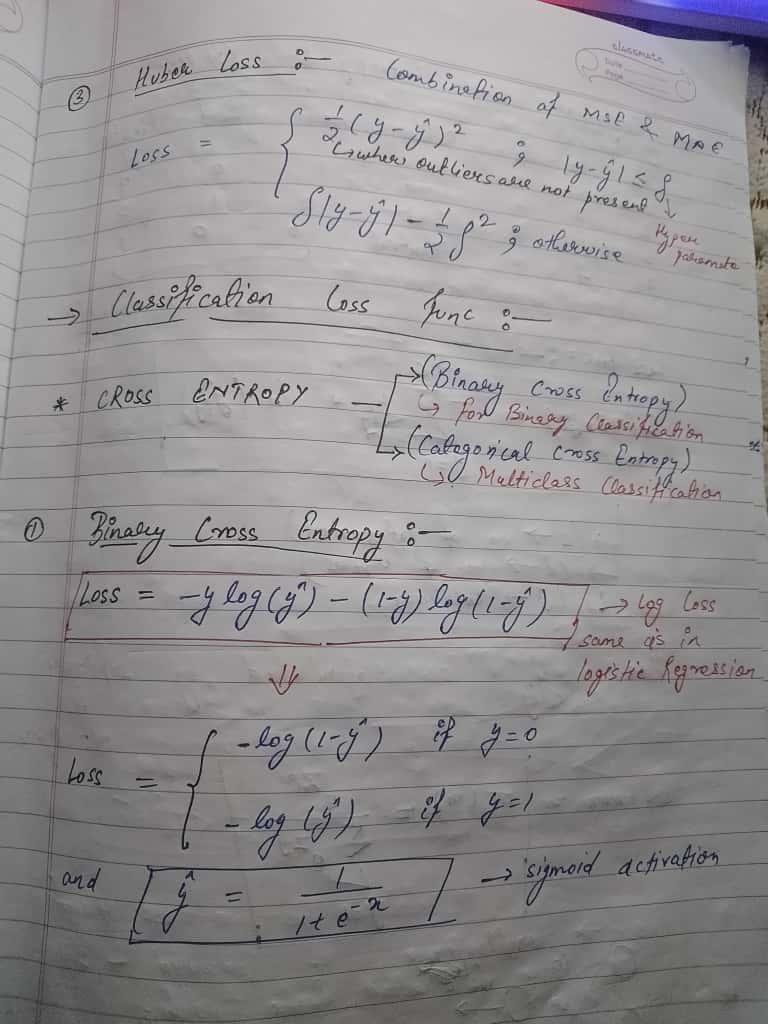 classmate
Date
Page
③ Huber Loss :- Combination of MSE & MAE
Loss = { 1/2 (y-ŷ)² ; |y-ŷ| ≤ δ
↳ when outliers are not present
δ|y-ŷ| - 1/2 δ² ; otherwise
↳ Hyper
paramete
→ Classification Loss func :-
* CROSS ENTROPY → (Binary Cross Entropy)
↳ for Binary Classification
→ (Categorical Cross Entropy)
↳ Multiclass Classification
① Binary Cross Entropy :-
Loss = -y log(ŷ) - (1-y) log(1-ŷ) → Log Loss
same as in
logistic Regression
⇓
Loss = { -log(1-ŷ) if y=0
-log(ŷ) if y=1
and ŷ = 1/(1+e^-x) → sigmoid activation